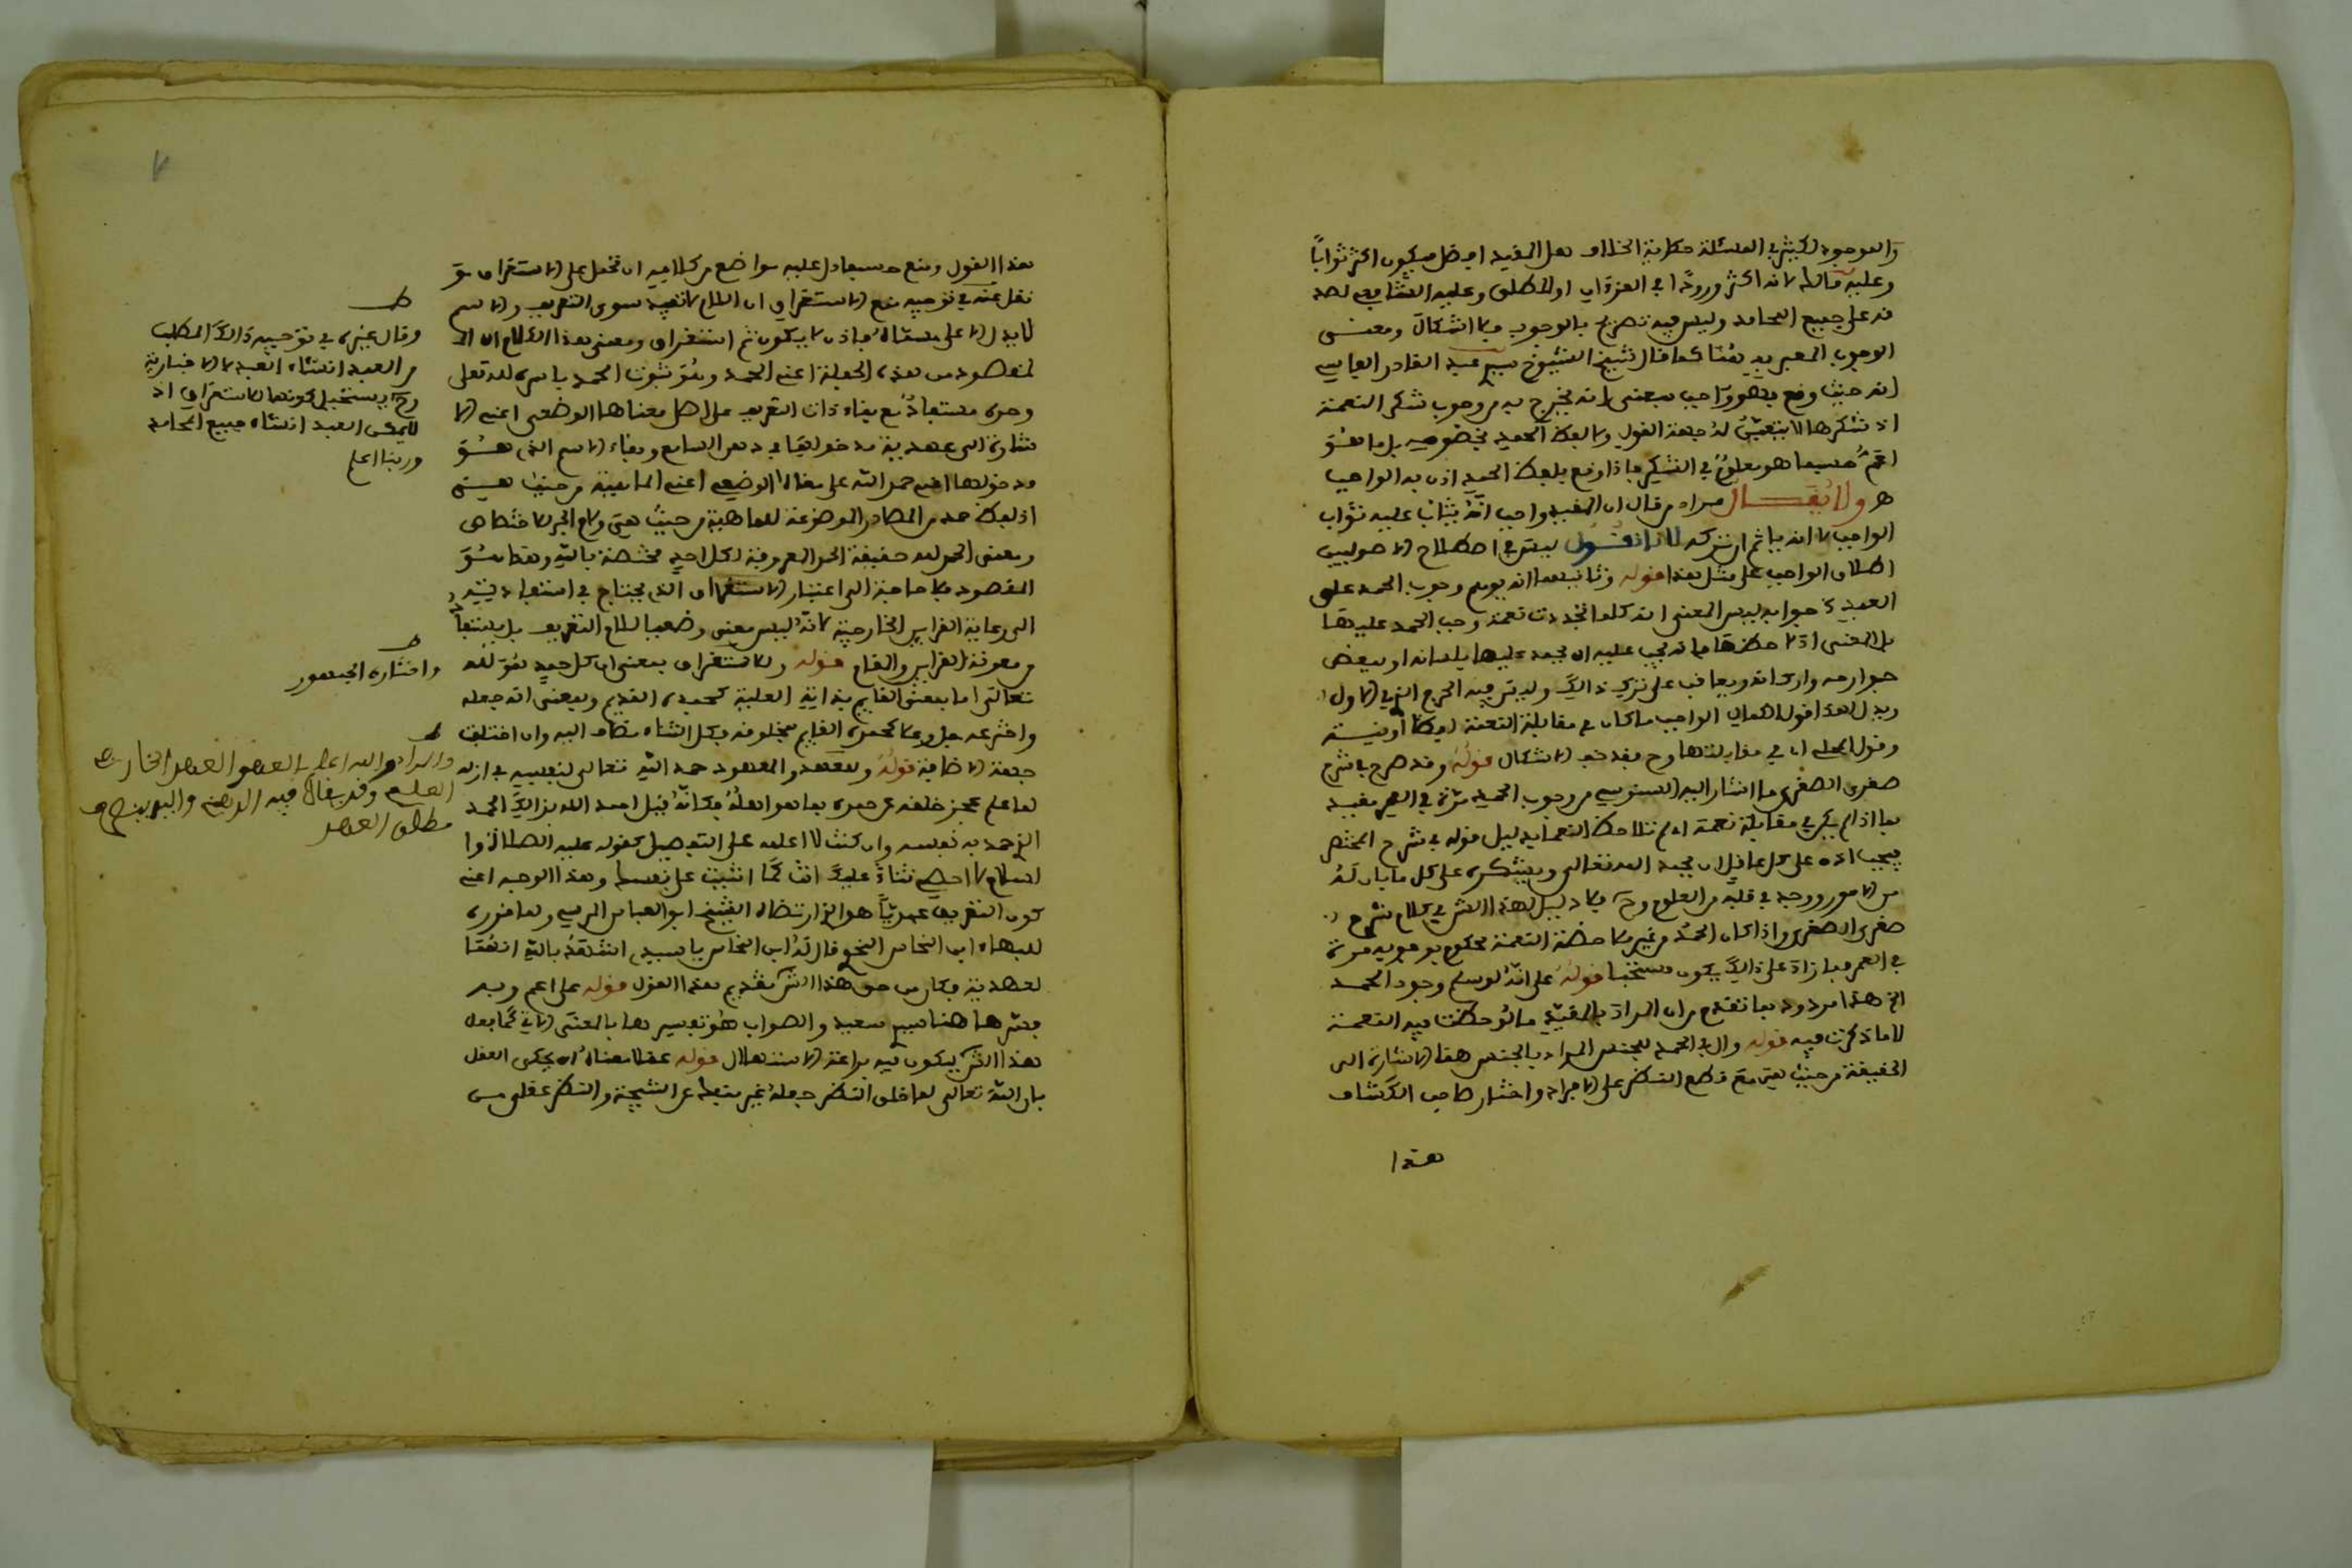 والموجود لكثير في المسئلة حكاية الخلاف هل المقيد افضل فيكون اكثر ثوابًا
وعليه مالك لانه اكثر ورودًا في القرءان او المطلق وعليه الشافعي لصد
قه على جميع المحامد وليس فيه تصريح بالوجوب فلا اشكال ومعنى
الوجوب المعبر به هنا كما قال شيخ الشيوخ سيدي عبد القادر الفاسي
انه حيث وقع فهو واجب بمعنى انه يخرج به من وجوب شكر النعمة
اذ شكرها لا يتعين له جهة القول ولا لفظ الحمد بخصوصه بل ما هو
اعم حسبما هو معلوم في الشكر فاذا وقع بلفظ الحمد ادى به الواجب
ولا يقال مراد من قال ان المقيد واجب انه يثاب عليه ثواب
الواجب لا انه ياثم ان تركه لانا نقول ليس في اصطلاح الاصوليين
اطلاق الواجب على مثل هذا قوله وثانيهما انه يوهم وجوب الحمد على
العبد جوابه ليس المعنى انه كلما تجددت نعمة وجب الحمد عليها
بل المعنى اذا لاحظها فانه يجب عليه ان يحمد عليها بلسانه او ببعض
جوارحه واركانه ويعاقب على ترك ذالك وليس فيه الحرج الذي في الاول
ويدل لهذا قول الهواري الواجب ما كان في مقابلة النعمة لفظًا او نية
وقول المحلي اي في مقابلتها وح فقد خف الاشكال قوله وقد صرح في شرح
صغرى الصغرى ما اشار اليه السنوسي من وجوب الحمد مرة في العمر مقيد
بما اذا لم يكن في مقابلة نعمة او لم تلاحظ النعمة بدليل قوله في شرح المختصر
فيجب اذا على كل عاقل ان يحمد الله تعالى ويشكره على كل ما بان له
من الامور ووجد في قلبه من العلوم وح فلا دليل لهذا الش في كلام شرح
صغرى الصغرى واذا كان الحمد من غير ملاحظة النعمة محكوم بوجوبه مرة
في العمر فما زاد على ذالك يكون مستحبا قوله على انه لو سلم وجود الحمد
الخ هذا مردود بما تقدم من ان المراد بالمقيد ما لوحظت فيه النعمة
لا ما ذكرت فيه قوله وال في الحمد للجنس المراد بالجنس هنا الاشارة الى
الحقيقة من حيث هي مع قطع النظر على الافراد واختار صاحب الكشاف
هذا
هذا القول ومنع حسبما دل عليه مواضع من كلامه ان تحمل على الاستغراق مو
نقل عنه في توجيه منع الاستغراق ان اللام لا تفيد سوى التعريف والاسم
لا يدل الا على مسماه فاذن لا يكون ثم استغراق ومعنى هذا الكلام ان ا
لمقصود من هذه الجملة اعني الحمد وهو ثبوت الحمد باسره لله تعلى
وحده مستفاد مع بقاء ذات التعريف على اصل معناها الوضعي اعني الا
شارة الى عهدية مدخولها في ذهن السامع وبقاء الاسم الذي هو
مدخولها اعني حمد الله على معناه الوضعي اعني الماهية من حيث هي
اذ لفظ حمد من المصادر الموضوعة للماهية من حيث هي ولام الجر للاختصاص
ومعنى الحمد لله حقيقة الحمد المعروفة لكل احد مختصة بالله وهذا هو
المقصود فلا حاجة الى اعتبار الاستغراق الذي يحتاج في استفادته
الى رعاية القراين الخارجية لانه ليس معنى وضعيا للام التعريف بل يستفاد
من معونة القراين والمقام قوله والاستغراق بمعنى ان كل حمد هو لله
تعالى اما بمعنى القايم بذاته العلية كحمده القديم وبمعنى انه جعله
واخترعه جل وعلا كحمده القايم بمخلوقه فكل الثناء مضاف اليه وان اختلفت
جهة الاضافة قوله وللعهد والمعهود حمد الله تعالى لنفسه في ازله
لما علم عجز خلقه عن حمده بما هو اهله فكانه قيل احمد الله بذالك الحمد
الذي حمد به نفسه وان كنت لا اعلمه على التفصيل كقوله عليه الصلاة وا
لسلام لا احصي ثناء عليك انت كما اثنيت على نفسك وهذا الوجه اعني
كون التعريف عهديًا هو الذي ارتضاه الشيخ ابو العباس المرسي ولما قرره
للبهاء ابن النحاس النحوي قال له ابن النحاس يا سيدي اشهد بالله انها
لعهدية فكان من حق هذا الش تقديم هذا القول قوله على اعم وبه
فسرها هنا سيدي سعيد والصواب هو تفسيرها بالمعنى الثاني كما فعل
هذا الش ليكون فيه براعة الاستهلال قوله عقلا معناه ان يحكم العقل
بان الله تعالى لما خلق النظر جعله غير منفك عن النتيجة والنظر عقلي من
ط
وقال غيره في توجيه ذالك المطلب
من العبد انشاء الحمد لا الاخبار به
وح يستحيل كونها للاستغراق اذ
لا يمكن العبد انشاء جميع المحامد
وربنا اعلم
ط
واختاره الجمهور
ط
والمراد والله اعلم بالعهد العهد الخارجي
العلمي وقد يقال فيه الذهني والى يرجع
مطلق العهد